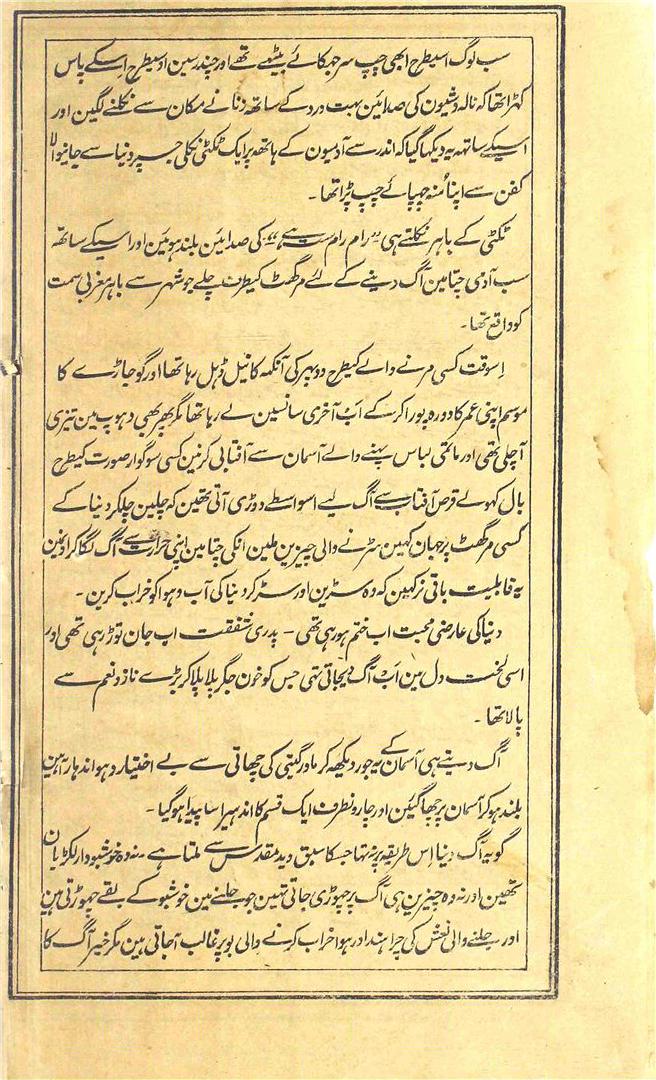 سب لوگ اسیطرح ابھی چپ سر جھکائے بیٹھے تھے اور چندرسین اوسیطرح اسکے پاس
کھڑا تھا کہ نالہ و شیون کی صدائین بہت درد کے ساتھ زنانے مکان سے نکلنے لگین اور
اسیکے ساتھہ یہ دیکھا گیا کہ اندر سے آدمیون کے ہاتھہ پر ایک ٹکٹی نکلی جسپر دنیا سے جانیوالا
کفن سے اپنا مُنہ چھپائے چپ پڑا تھا۔
ٹکٹی کے باہر نکلتے ہی ”رام رام ست ہے“ کی صدائین بلند ہوئین اور اسیکے ساتھہ
سب آدمی چتا مین آگ دینے کے لئے مرگھٹ کیطرف چلے جو شہر سے باہر مغربی سمت
کو واقع تھا۔
اِسوقت کسی مرنے والے کیطرح دوپہر کی آنکھہ کا نیل ڈہل رہا تھا اور گو جاڑے کا
موسم اپنی عمر کا دورہ پورا کرکے اَب آخری سانسین لے رہا تھا مگر پھر بھی دہوپ مین تیزی
آچلی تھی اور ماتمی لباس پہنے والے آسمان سے آفتابی کرنین کسی سوگوار صورت کیطرح
بال کھولے قرص آفتاب سے آگ لیے اسواسطے دوڑی آتی تھین کہ چلین چلکر دنیا کے
کسی مرگھٹ پر جہان کہین سڑنے والی چیزین ملین انکی چتا مین اپنی حرارت سے آگ لگا کر اونمین
یہ قابلیت باقی نرکہین کہ وہ سڑین اور سڑ کر دنیا کی آب و ہوا کو خراب کرین۔
دنیا کی عارضی محبت اب ختم ہو رہی تھی ۔ پدری شفقت اب جان توڑ رہی تھی اور
اسی لخت دل مین اَب آگ دیجاتی تھی جس کو خون جگر پلا پلا کر بڑے ناز و نعم سے
پالا تھا۔
آگ دیتے ہی آسمان کے یہ جور دیکھہ کر مادر گیتی کی چھاتی سے بے اختیار دہواندہار آہین
بلند ہو کر آسمان پر چھا گیئن اور چارونطرف ایک قسم کا اندہیرا سا پیدا ہوگیا۔
گو یہ آگ دینا اِس طریقہ پر نہ تہا جسکا سبق وید مقدس سے ملتا ہے ۔ نہ وہ خوشبودار لکڑیان
تھین اور نہ وہ چیزین ہی آگ پر چھوڑی جاتی تہین جو جلنے مین خوشبو کے بقے چھوڑتی ہین
اور جلنے والی نعش کی چراہند اور ہوا خراب کرنے والی بو پر غالب آجاتی ہین مگر خیر آگ کا